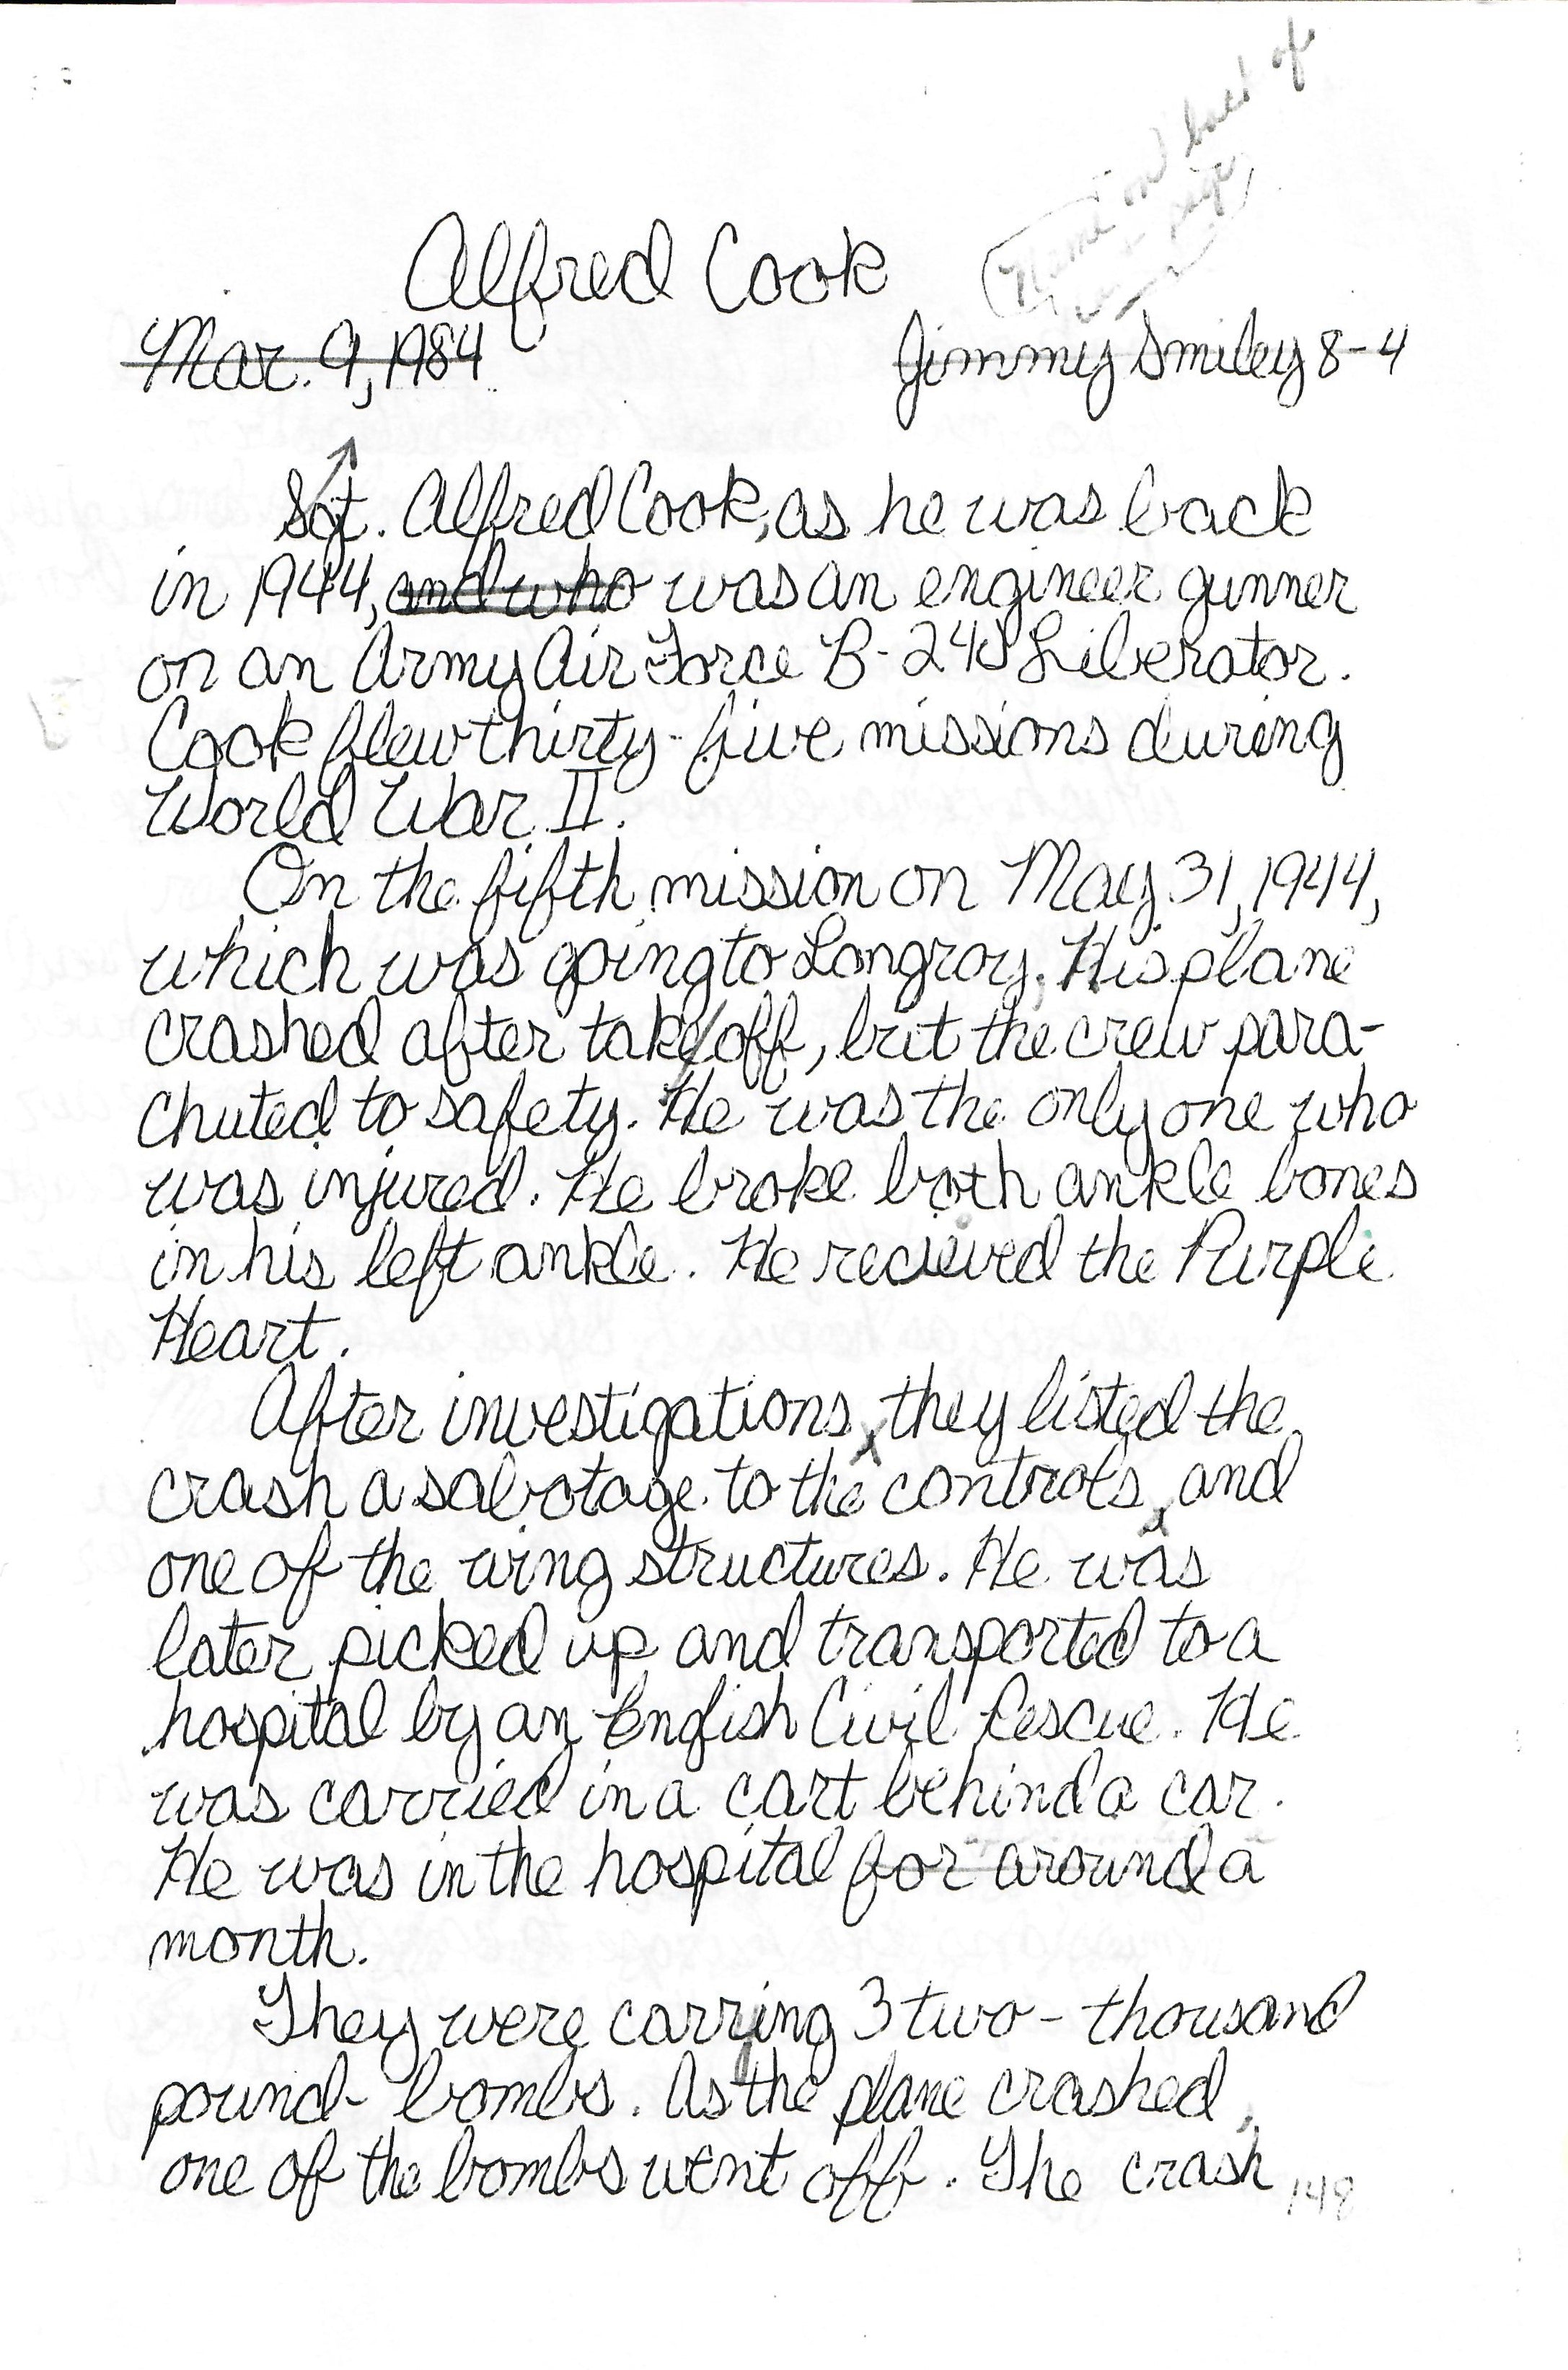 Name on back of
page
Alfred Cook
Mar. 9, 1984 Jimmy Smiley 8-4
Sgt. Alfred Cook, as he was back
in 1944, and who was an engineer gunner
on an Army Air Force B-24 Liberator.
Cook flew thirty-five missions during
World War II.
On the fifth mission on May 31, 1944,
which was going to Longroy. His plane
crashed after take off, but the crew para-
chuted to safety. He was the only one who
was injured. He broke both ankle bones
in his left ankle. He recieved the Purple
Heart.
After investigations, they listed the
crash a sabotage to the controls, and
one of the wing structures. He was
later picked up and transported to a
hospital by an English Civil Rescue. He
was carried in a cart behind a car.
He was in the hospital for around a
month.
They were carring 3 two-thousand
pound- bombs. As the plane crashed,
one of the bombs went off. The crash
148